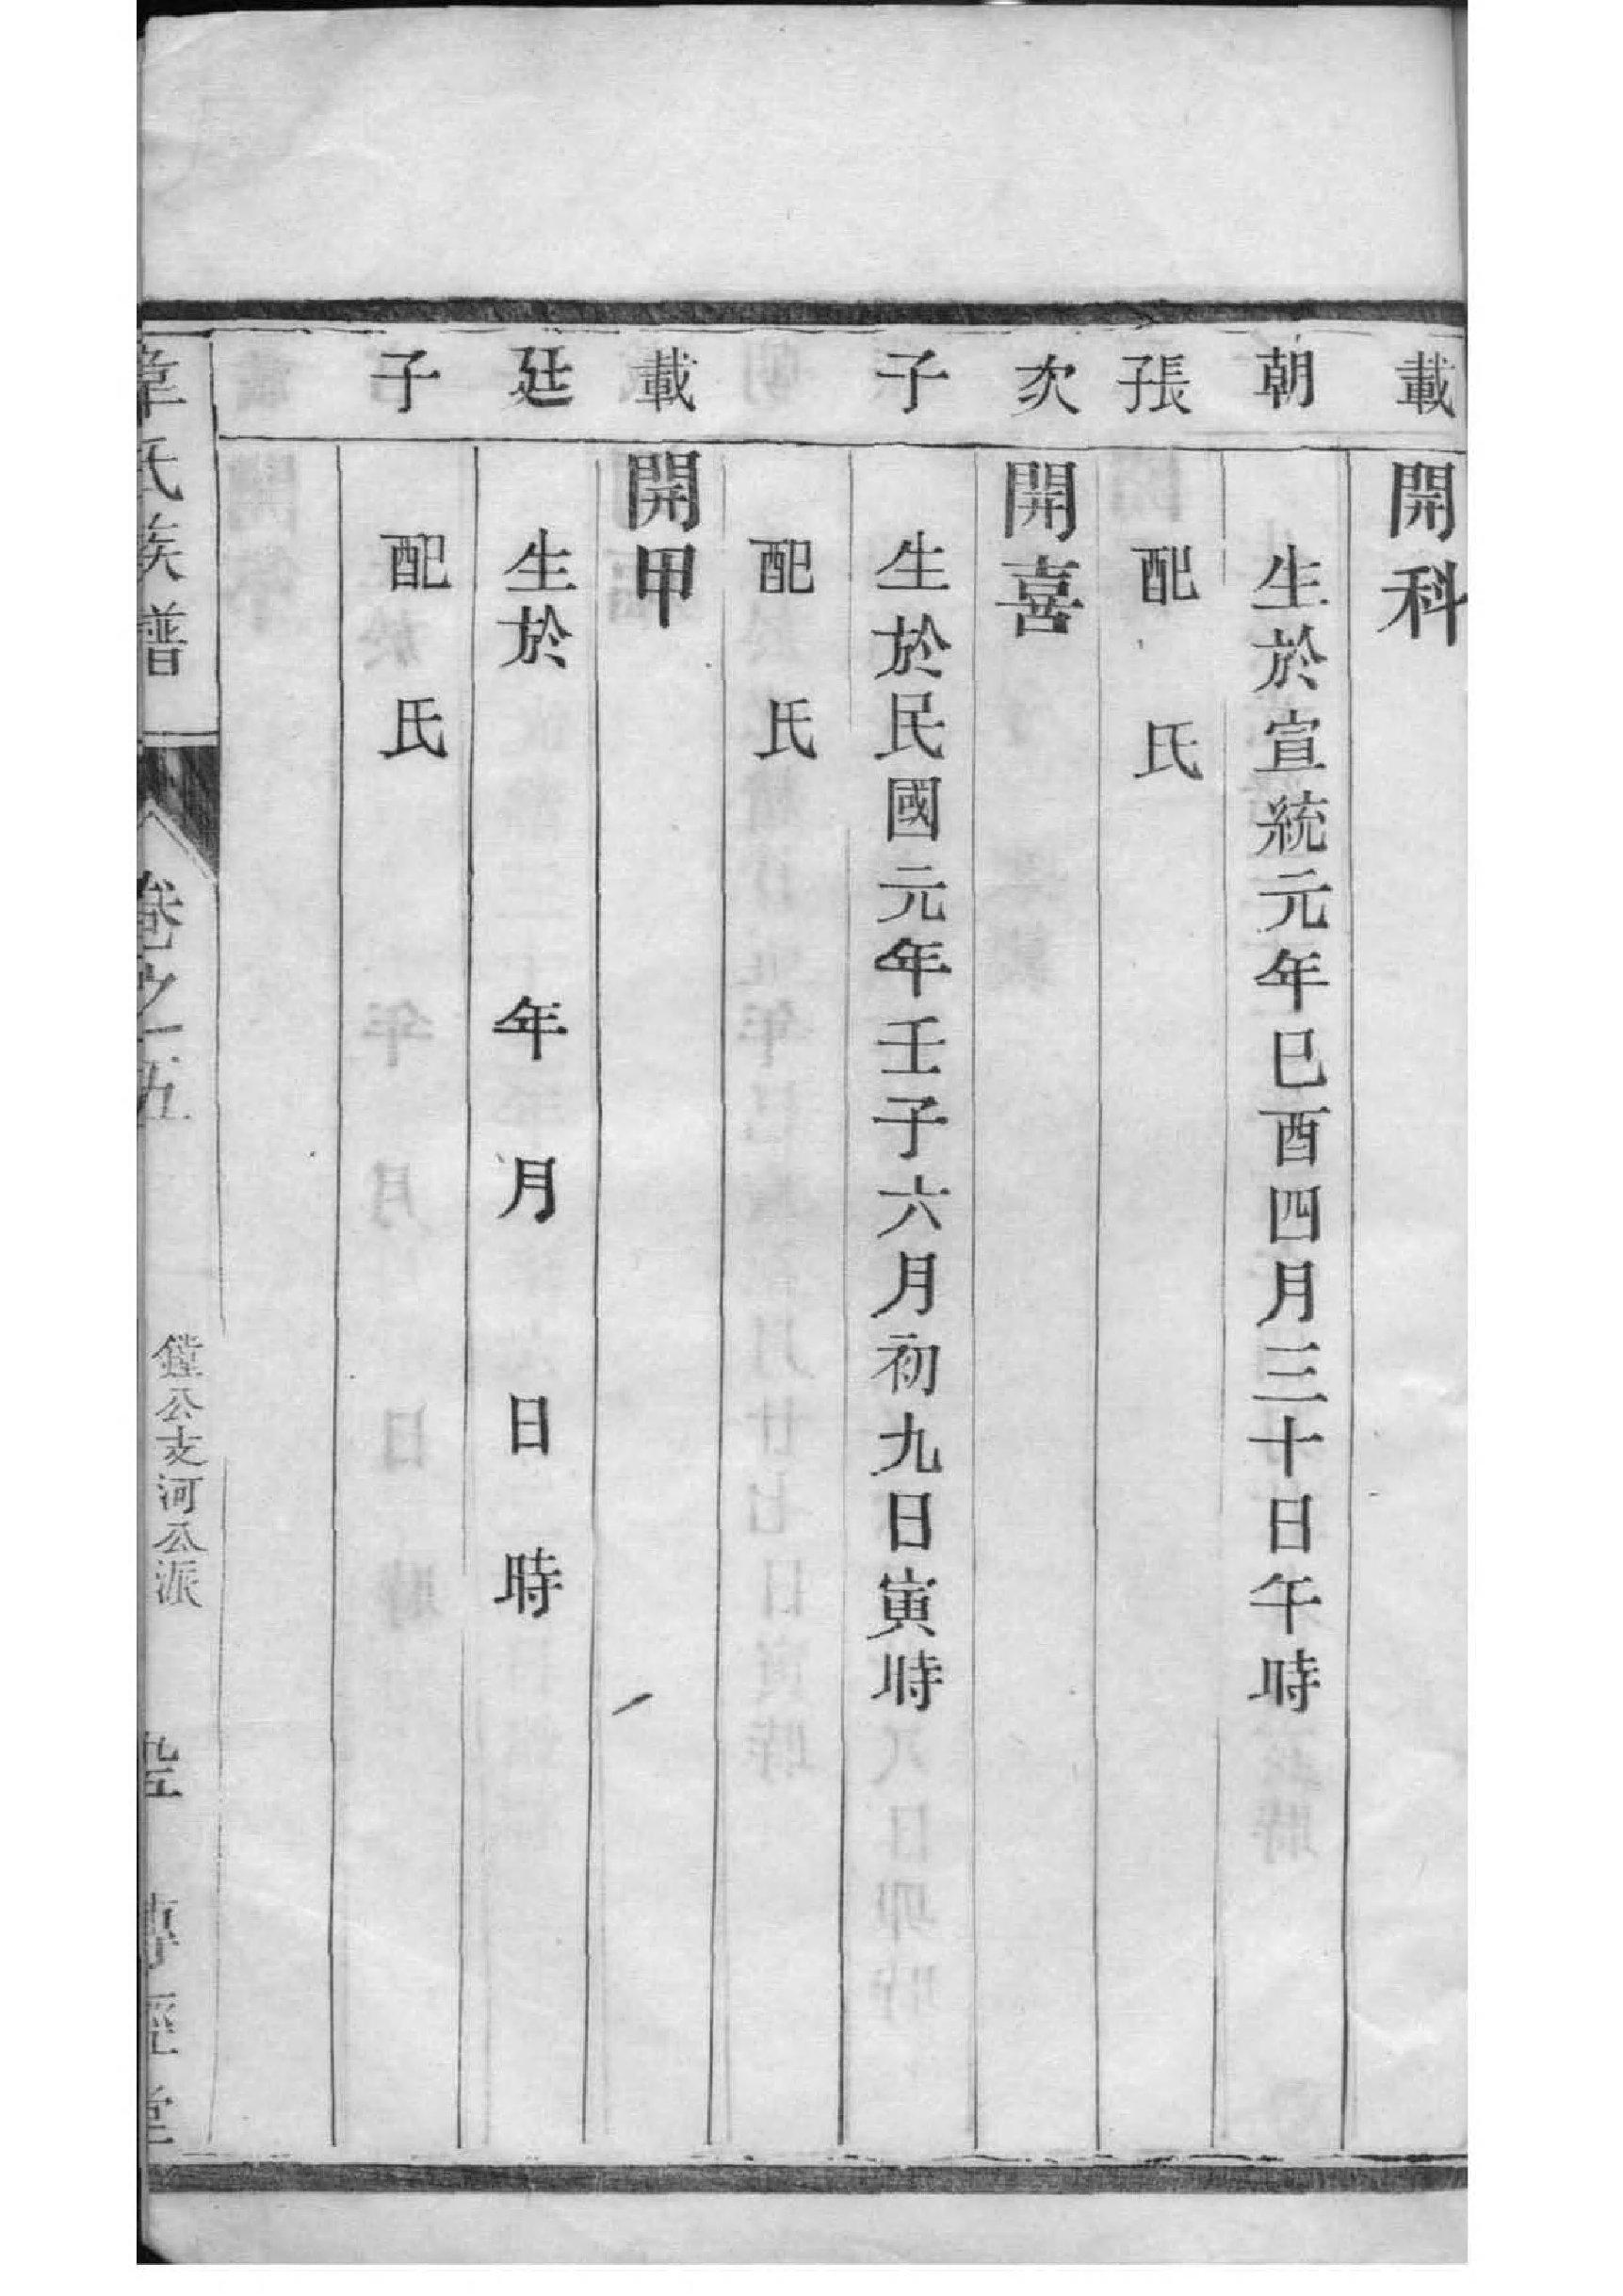 載 開科
朝 生於宣統元年巳酉四月三十日午時
張 配 氏
次 開喜
子 生於民國元年壬子六月初九日寅時
配 氏
載 開甲
廷 生於 年 月 日 時
子 配 氏
章氏族譜 卷之五 鏜公支河公派